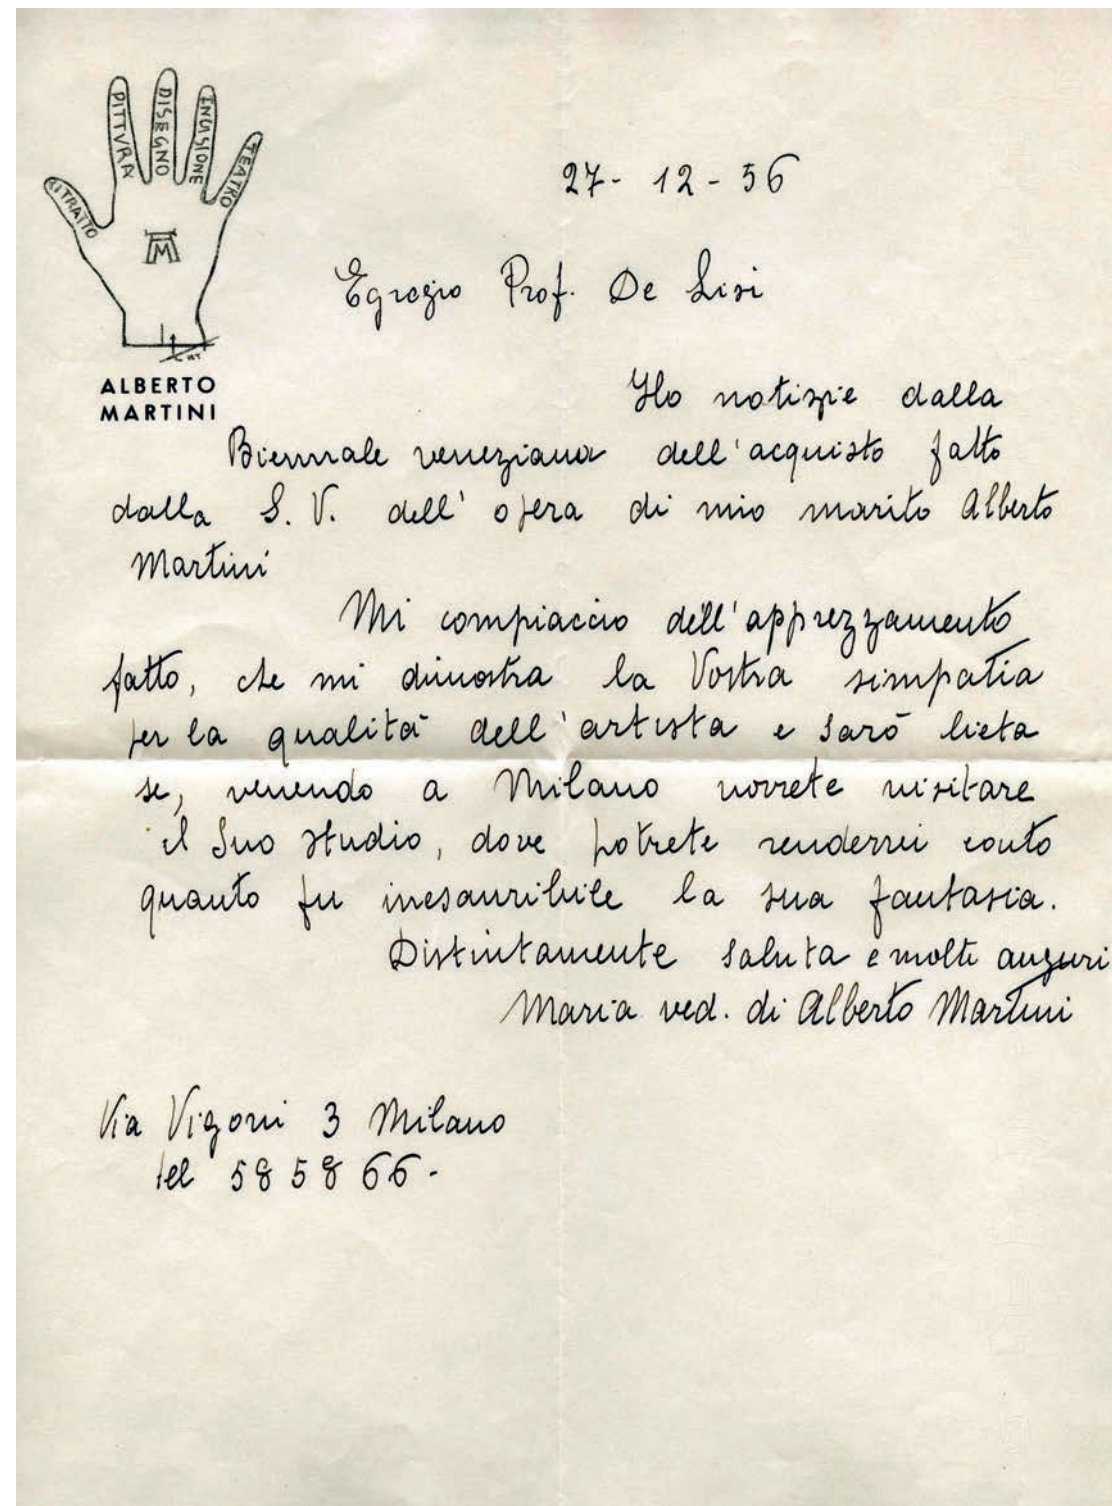 RITRATTO
PITTVRA
DISEGNO
INCISIONE
TEATRO
M
ALBERTO
MARTINI
27-12-56
Egregio Prof. De Lisi
Ho notizie dalla
Biennale veneziana dell'acquisto fatto
dalla S. V. dell'opera di mio marito Alberto
Martini
Mi compiaccio dell'apprezzamento
fatto, che mi dimostra la Vostra simpatia
per la qualità dell'artista e sarò lieta
se, venendo a Milano vorrete visitare
il Suo studio, dove potrete rendervi conto
quanto fu inesauribile la sua fantasia.
Distintamente saluta e molti auguri
Maria ved. di Alberto Martini
Via Vigoni 3 Milano
tel 585866-